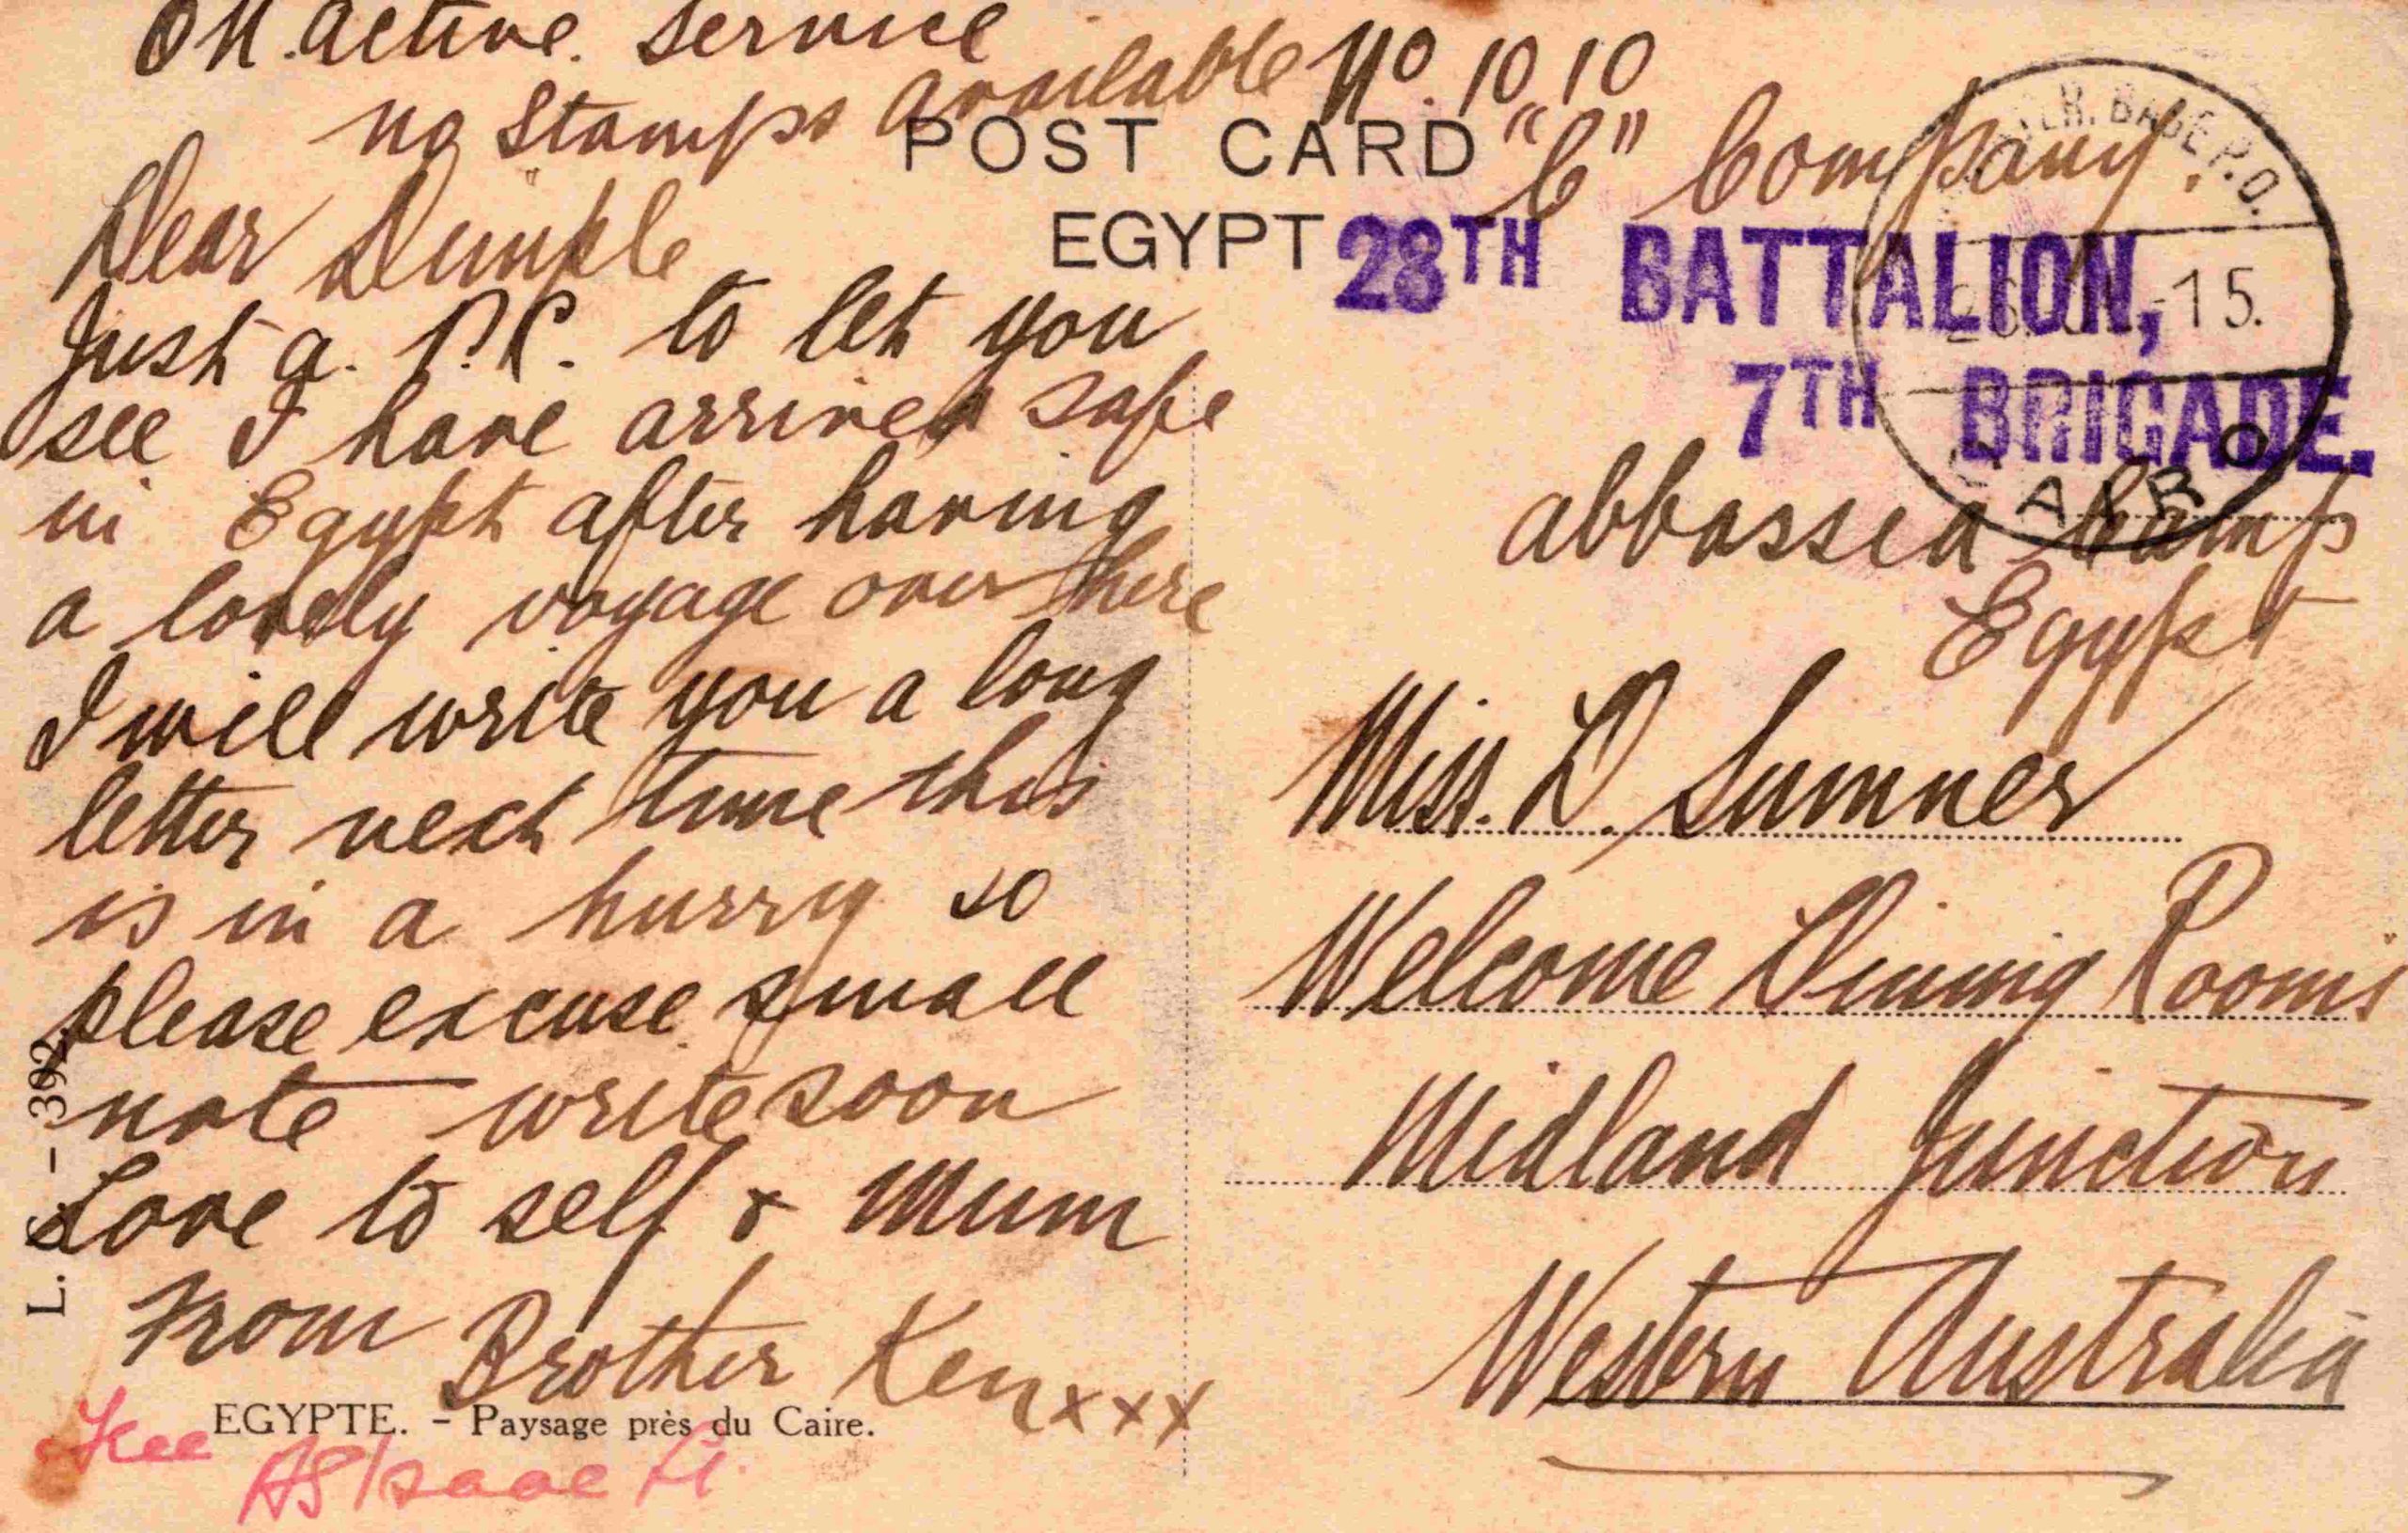 On active service
no Stamps available
No. 1010
"C" Company.
POST CARD
EGYPT
28TH BATTALION,
7TH BRIGADE.
BASE P.O.
15.
CAIRO
abbassia Camp
Egypt
Dear Dimple
Just a. P.C. to let you
see I have arrived safe
in Egypt after having
a lovely voyage over here
I will write you a long
letter next time this
is in a hurry so
please excuse small
note write soon
Love to self & Mum
From Brother Ken xxx
Miss. D. Sumner
Welcome Dining Rooms
Midland Junction
Western Australia
EGYPTE. – Paysage près du Caire.